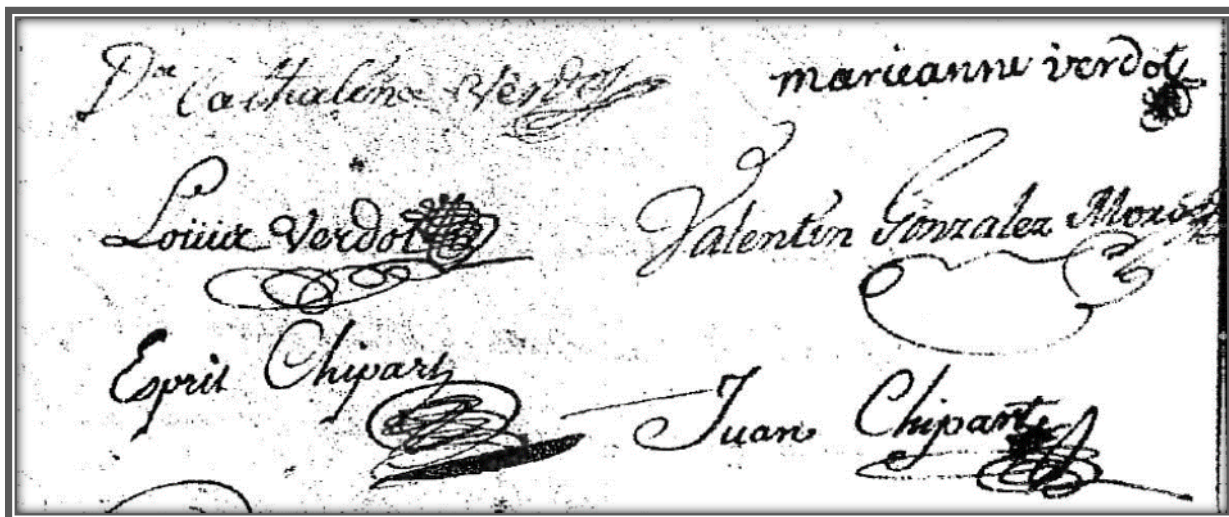 Dª Cathalina Verdot
marieanne verdot
Louix Verdot
Valentin Gonzalez
Esprit Chipart
Juan Chipart